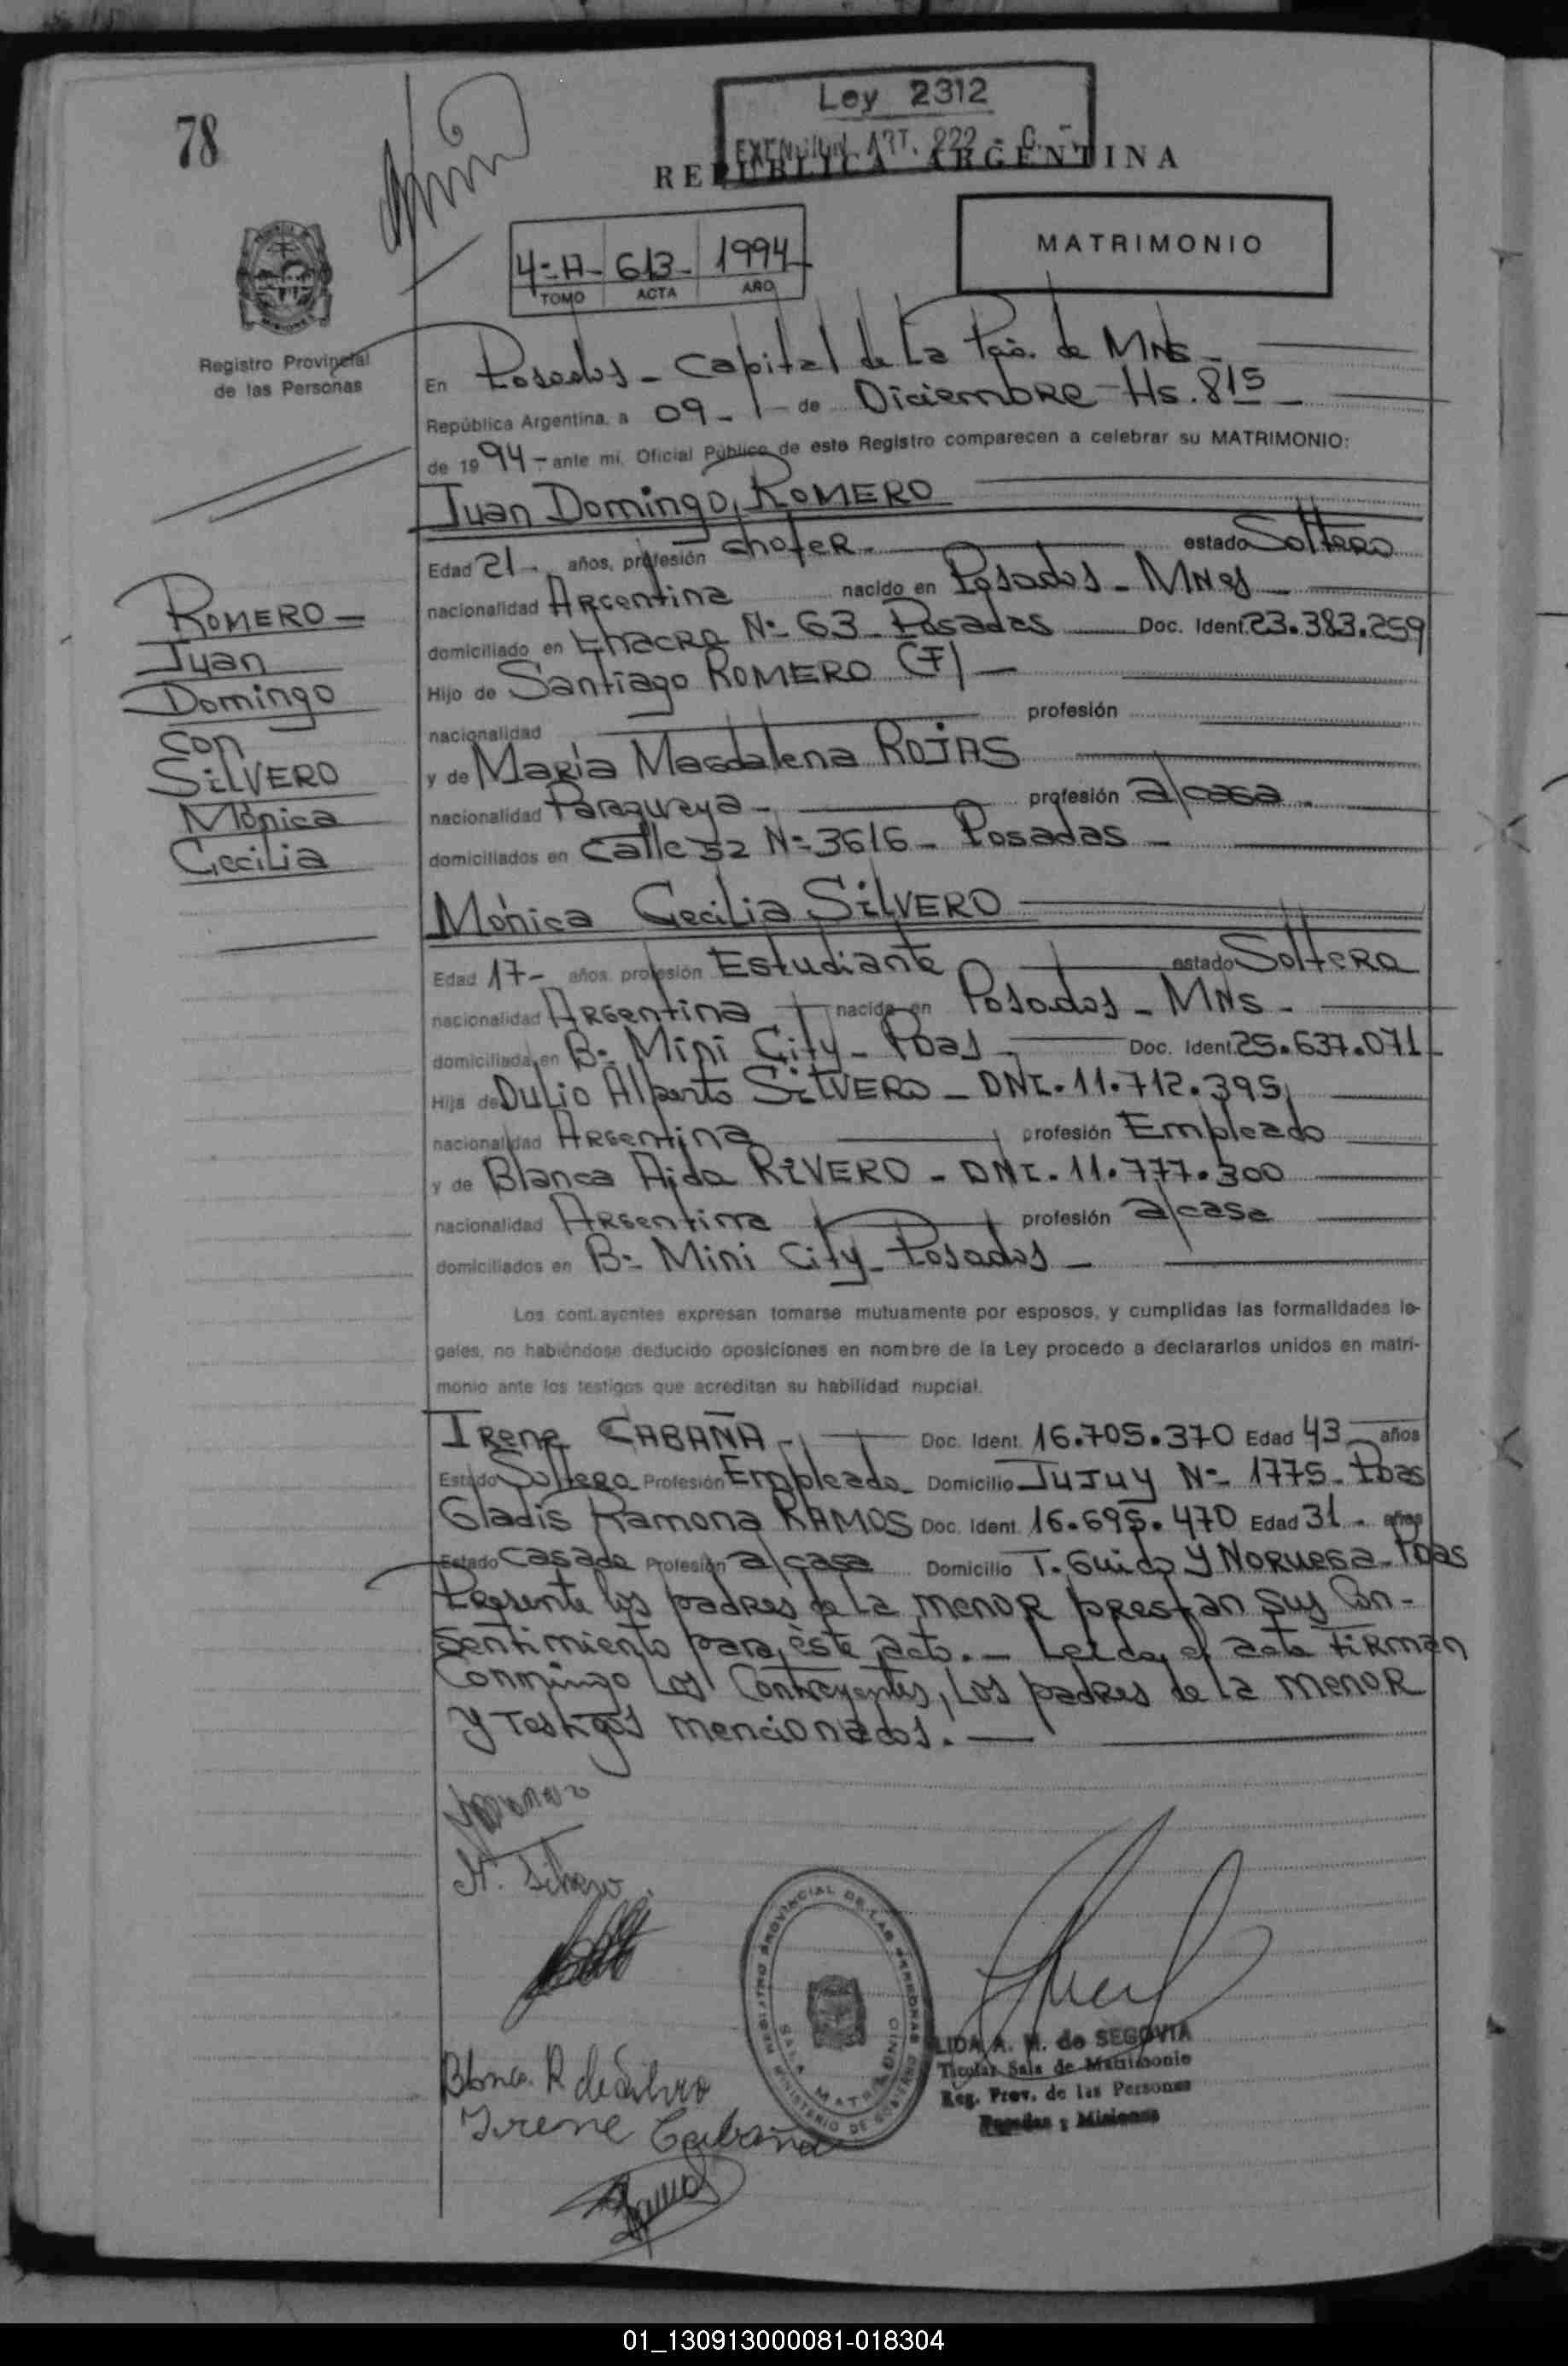 78
Ley 2312
EXENSION ART. 222 - C.
REPUBLICA ARGENTINA
MATRIMONIO
4-A- 613- 1994-
TOMO ACTA AÑO
Registro Provincial
de las Personas
En Posadas - Capital de La Pcia. de Mns -
República Argentina, a 09 - de Diciembre - Hs. 815 -
de 1994 - ante mi, Oficial Público de este Registro comparecen a celebrar su MATRIMONIO:
Juan Domingo ROMERO
Edad 21 - años, profesión chofer - estado Soltero
nacionalidad Argentina nacido en Posadas - Mnes
domiciliado en Chacra Nº 63 - Posadas Doc. Ident. 23.383.259
Hijo de Santiago ROMERO (F) -
nacionalidad profesión
y de María Magdalena ROJAS
nacionalidad Paraguaya - profesión a/casa -
domiciliados en Calle 52 Nº 3616 - Posadas -
ROMERO -
Juan
Domingo
con
SILVERO
Mónica
Cecilia
Mónica Cecilia SILVERO
Edad 17 - años, profesión Estudiante estado Soltera
nacionalidad Argentina nacida en Posadas - Mns -
domiciliada en Bº Mini City - Pdas - Doc. Ident. 25.637.071
Hija de Dulio Alberto SILVERO - DNI. 11.712.395
nacionalidad Argentina profesión Empleado
y de Blanca Aida RIVERO - DNI. 11.777.300
nacionalidad Argentina profesión a/casa
domiciliados en Bº Mini City - Posadas -
Los contrayentes expresan tomarse mutuamente por esposos, y cumplidas las formalidades le-
gales, no habiéndose deducido oposiciones en nombre de la Ley procedo a declararlos unidos en matri-
monio ante los testigos que acreditan su habilidad nupcial.
Irene CABAÑA - Doc. Ident. 16.705.370 Edad 43 - años
Estado Soltera Profesión Empleada Domicilio Jujuy Nº 1775 - Pdas
Gladis Ramona RAMOS Doc. Ident. 16.695.470 Edad 31 - años
Estado Casada Profesión a/casa Domicilio T. Guido y Noruega - Pdas
Presente los padres de la menor prestan sus Con-
sentimiento para éste acto. - Leída el acta firman
Conmigo Los Contrayentes, Los padres de la menor
y Testigos mencionados. -
M. Silvero
Blanca R de Silvero
Irene Cabaña
Ramos
REGISTRO PROVINCIAL DE LAS PERSONAS
SALA MATRIMONIO
MINISTERIO DE GOBIERNO
LIDA A. M. de SEGOVIA
Titular Sala de Matrimonio
Reg. Prov. de las Personas
Posadas : Misiones
01_130913000081-018304